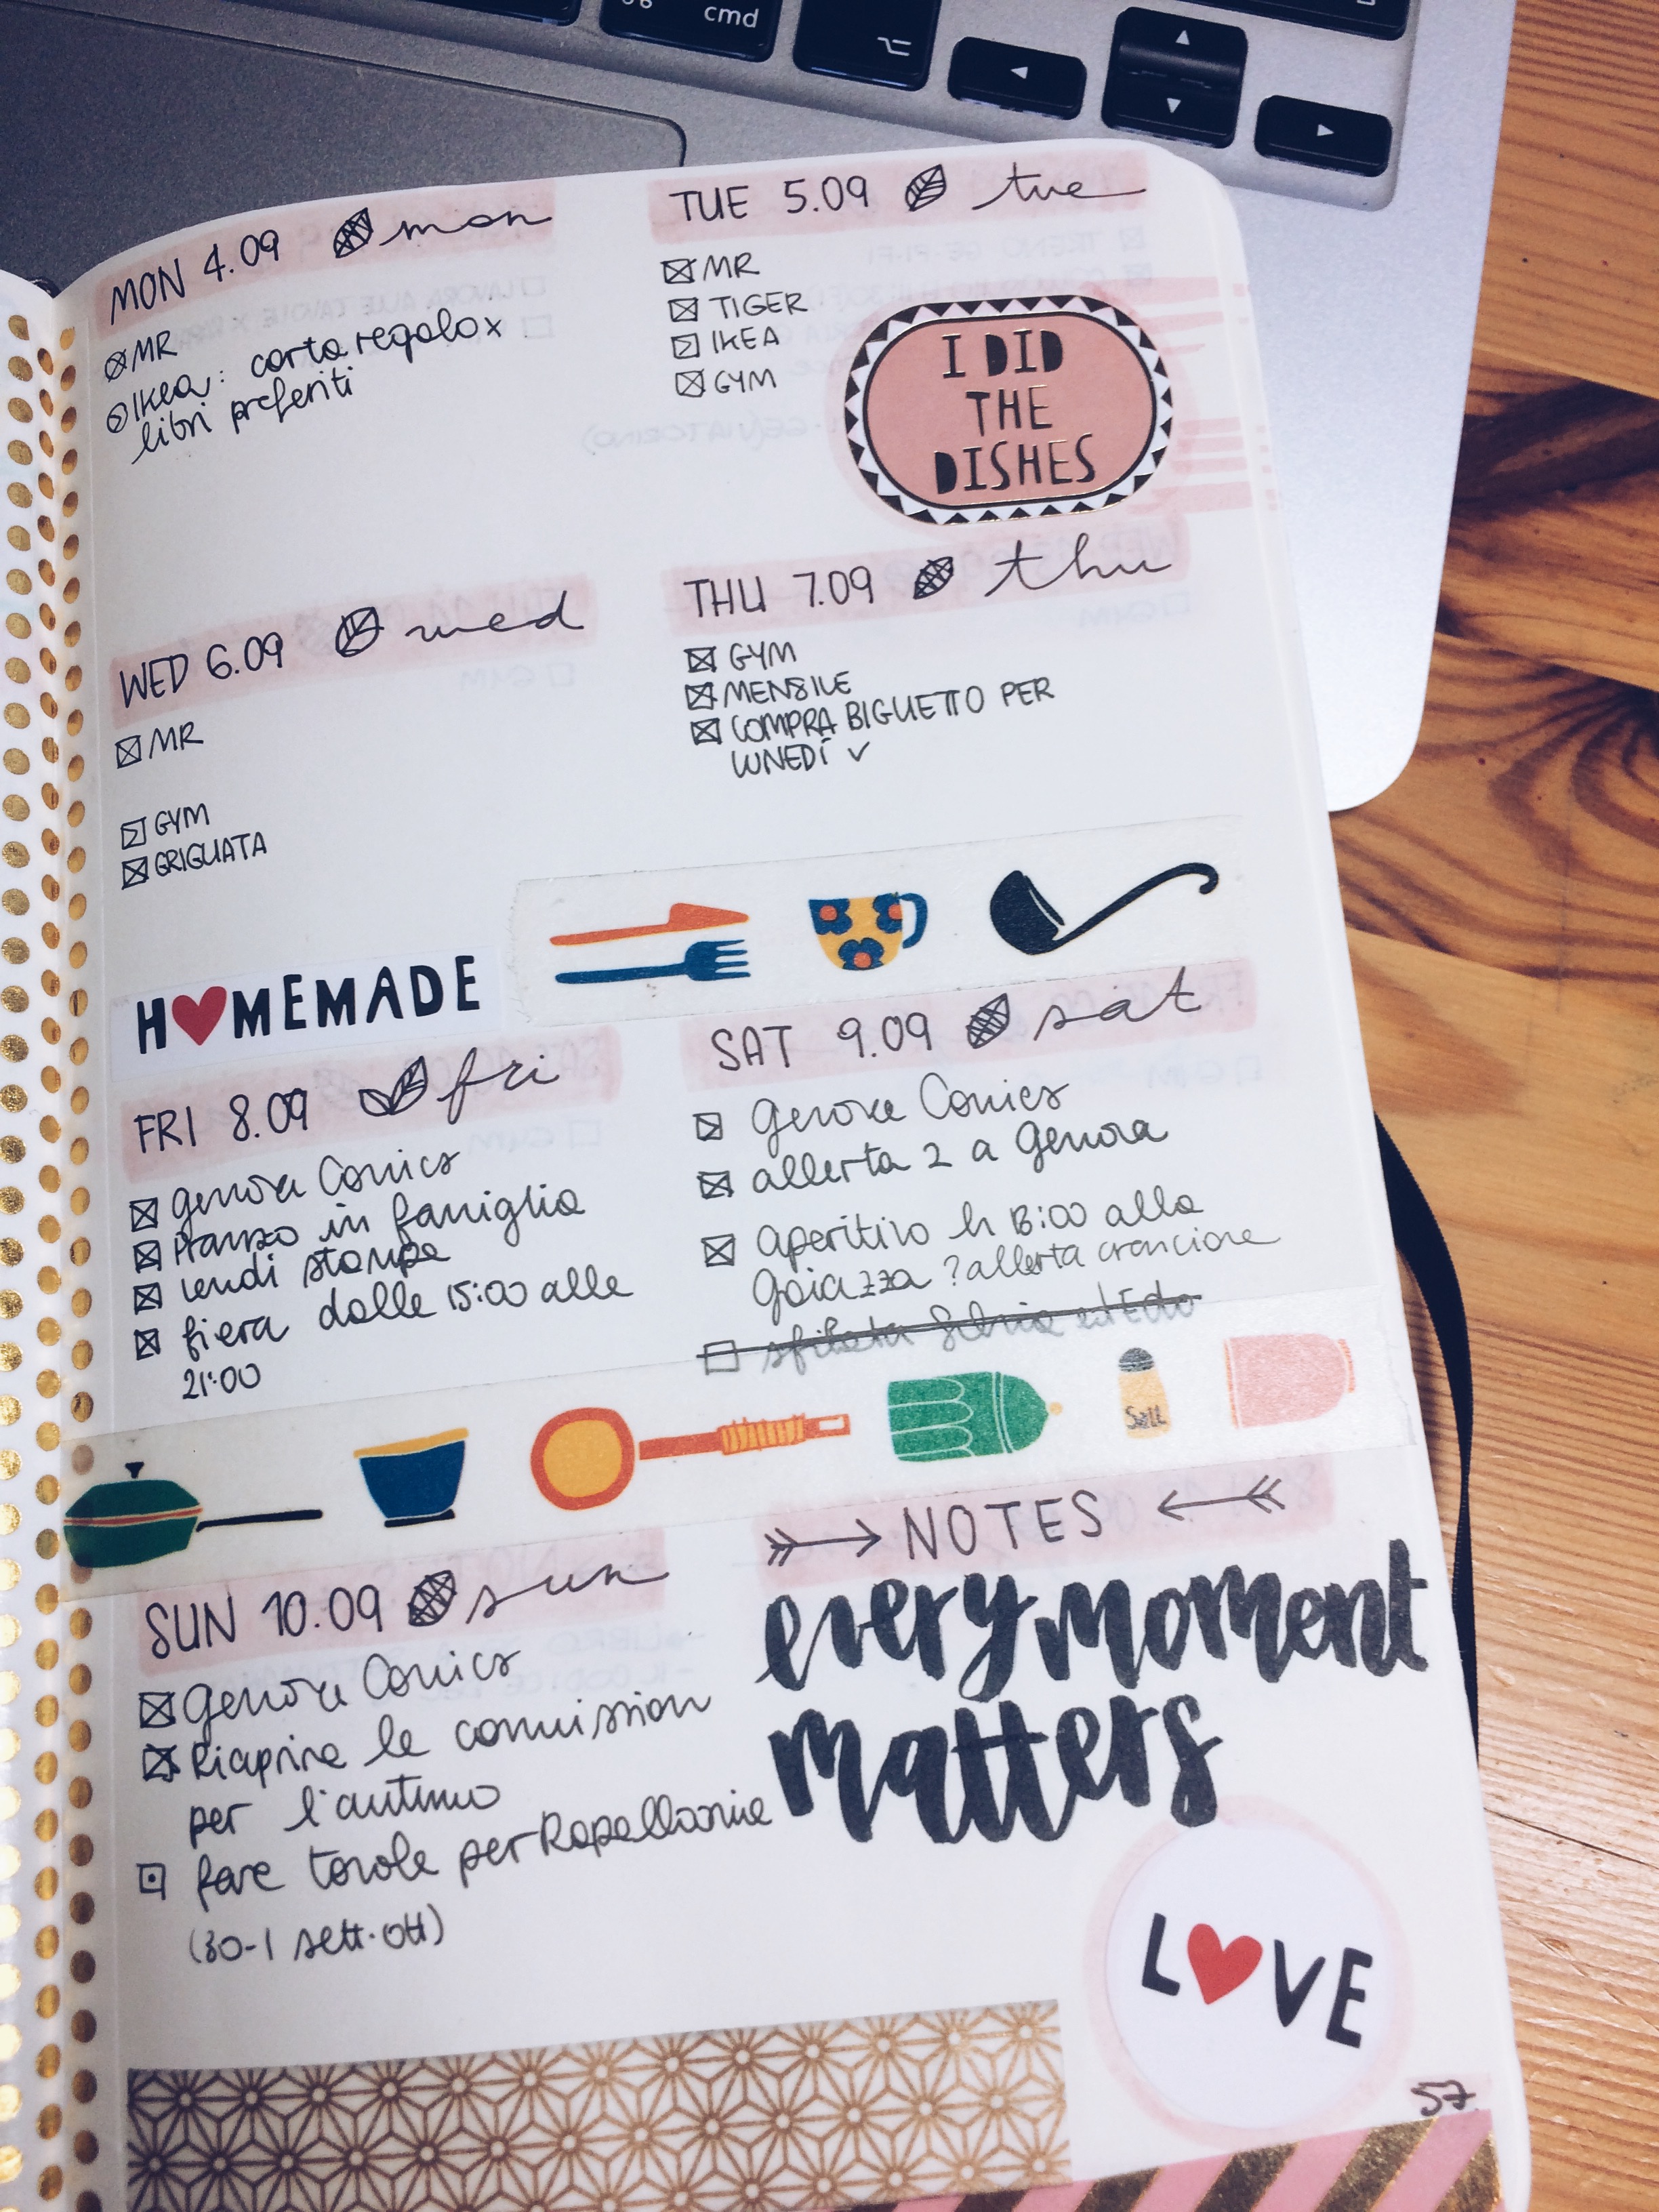 cmd
MON 4.09 mon
MR
Ikea: carta regalo x
libri preferiti
TUE 5.09 tue
MR
TIGER
IKEA
GYM
I DID
THE
DISHES
WED 6.09 wed
MR
GYM
GRIGLIATA
THU 7.09 thu
GYM
MENSILE
COMPRA BIGLIETTO PER
LUNEDÍ ✓
HOMEMADE
FRI 8.09 fri
Genova Comics
Pranzo in famiglia
vendi stampe
fiera dalle 15:00 alle
21:00
SAT 9.09 sat
Genova Comics
allerta 2 a Genova
Aperitivo h 18:00 alla
Goiazza ? allerta arancione
Silvia ed Edo
Salt
SUN 10.09 sun
Genova Comics
Riaprire le commission
per l'autunno
fare tavole per Rapallonia
(30-1 sett-ott)
NOTES
every moment
matters
LOVE
57